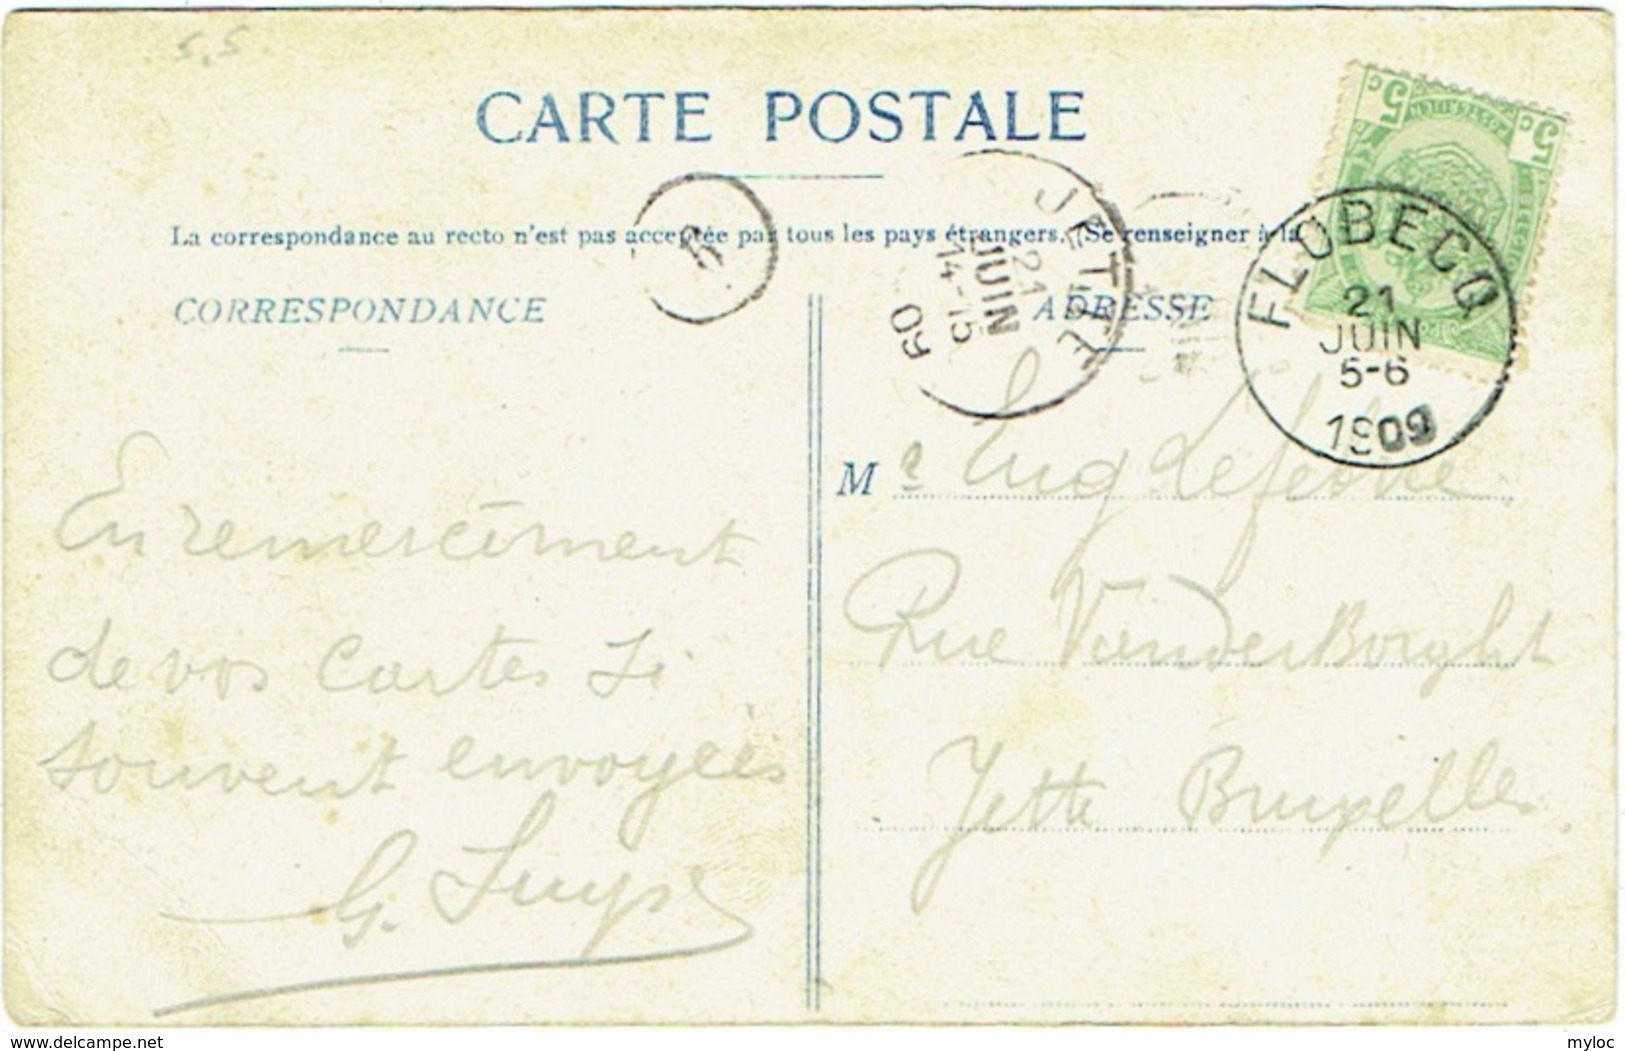 5,5
CARTE POSTALE
La correspondance au recto n'est pas acceptée par tous les pays étrangers. (Se renseigner à la
CORRESPONDANCE
ADRESSE
5
JETTE
21
JUIN
14-15
09
5 c
5 c
FLOBECQ
21
JUIN
5-6
1909
En remerciment
de vos cartes si
souvent envoyées
G.
Mr Eug Lefebvre
Rue VanderBorght
Jette Bruxelles
delcampe.net
myloc